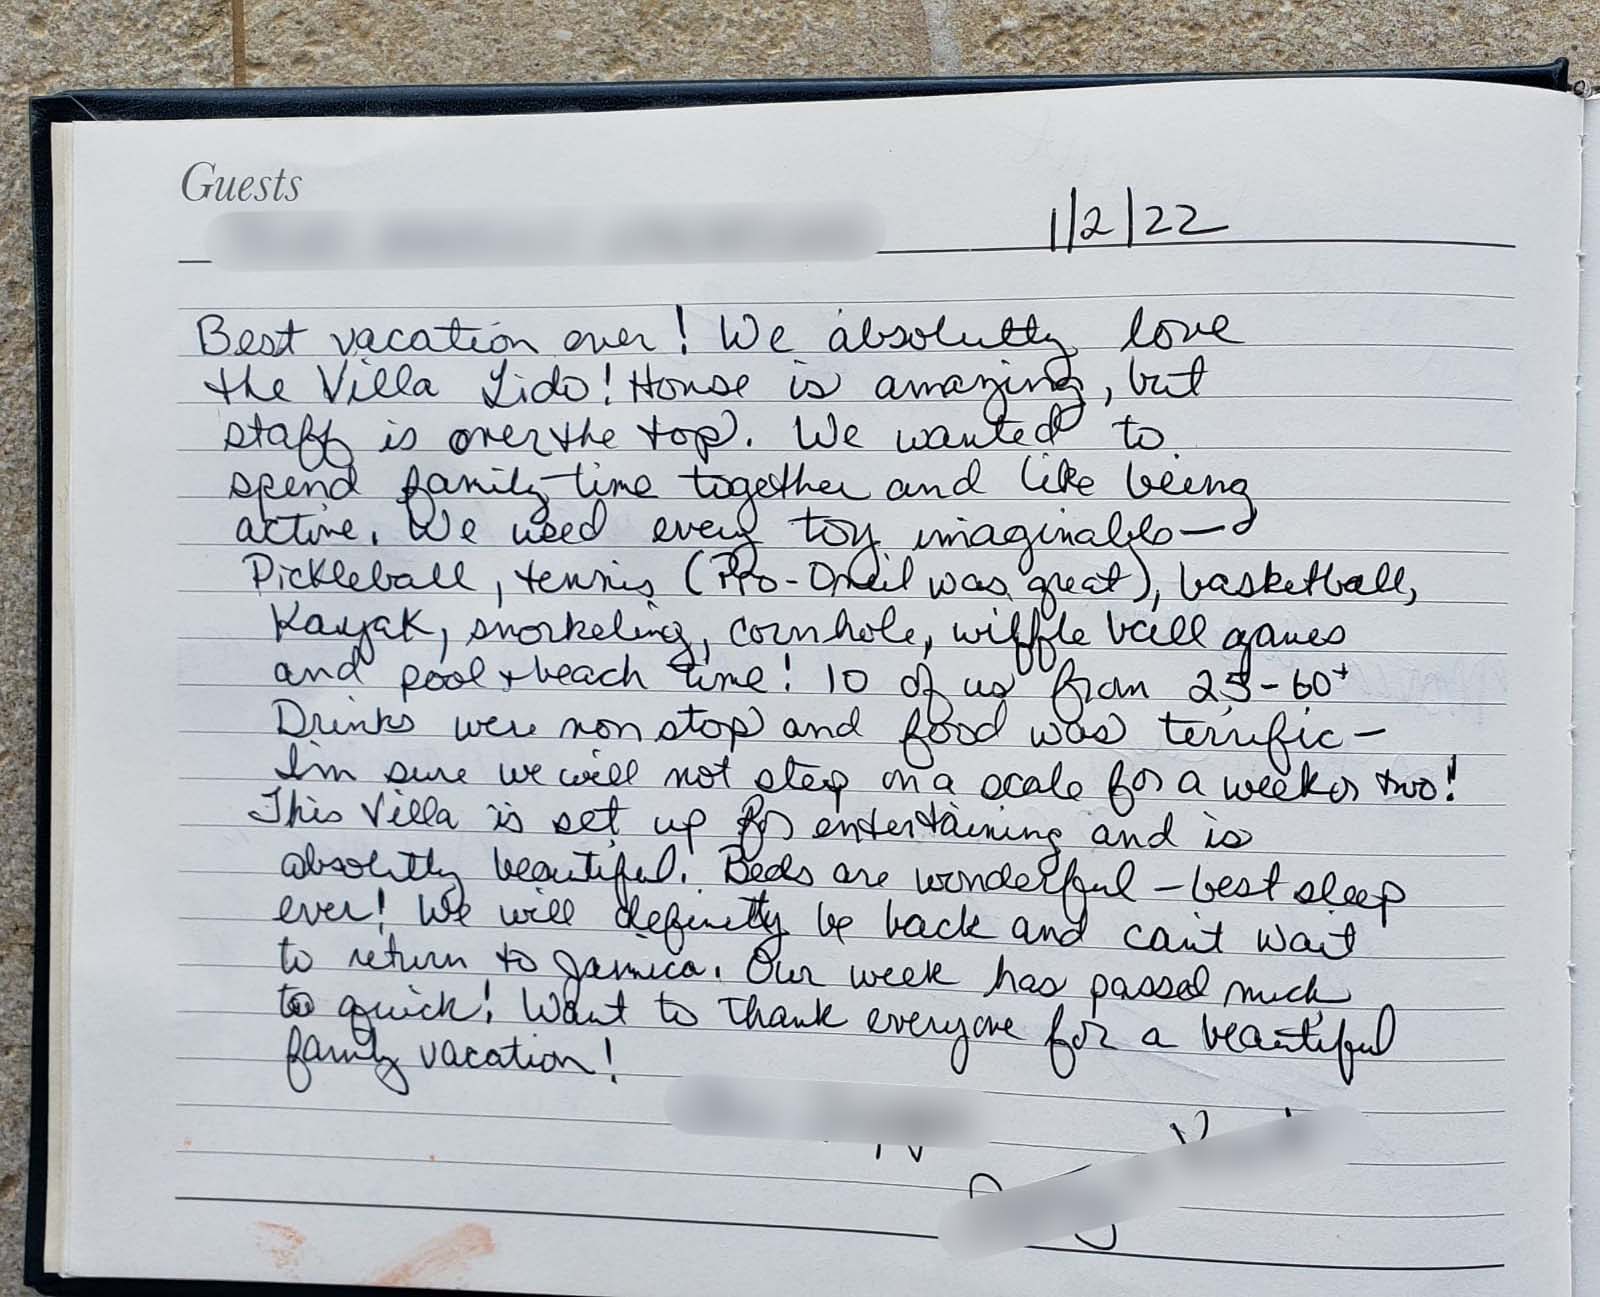 Guests
1/2/22
Best vacation ever! We absolutly love
the Villa Lido! House is amazing, but
staff is over the top. We wanted to
spend family time together and like being
active. We used every toy imaginable -
Pickleball, tennis (Pro-Oneil was great), basketball,
Kayak, snorkeling, cornhole, wiffle ball games
and pool + beach time! 10 of us from 25-60+
Drinks were non stop and food was terrific -
I'm sure we will not step on a scale for a week or two!
This Villa is set up for entertaining and is
absolutly beautiful. Beds are wonderful - best sleep
ever! We will definetly be back and can't wait
to return to Jamica. Our week has passed much
to quick! Want to thank everyone for a beautiful
family vacation!